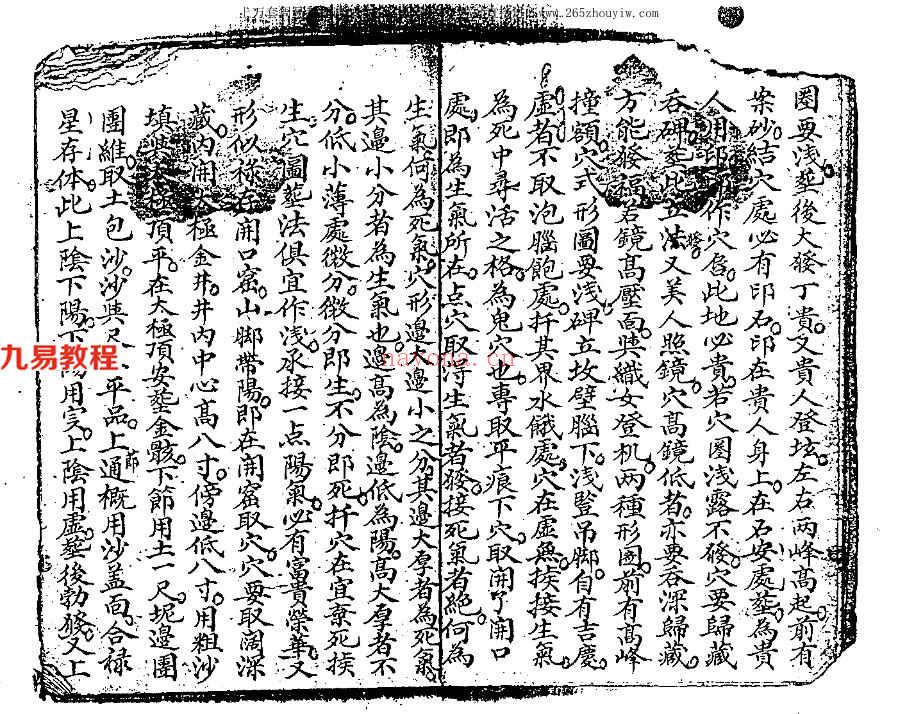 www.265zhouyiw.com
圏要浅葬後大發丁貴又貴人登坛左右两峰高起前有
案砂結穴處必有印石印在貴人身上在石安處葬為貴
人用印作穴此地必貴若穴圏浅露不發穴要歸藏
吞碑葬此立法又美人照鏡穴高鏡低者亦要吞深歸藏
方能發福若鏡高壓面與織女登机两種形圏前有髙峰
撞額穴式形圖要浅碑立坟壁腦下浅竪吊脚自有吉慶
虚者不取泡腦飽處扦其界水餓處穴在虚無挨接生氣
為死中尋活之格為鬼穴也專取平痕下穴取開了開口
處即為生氣所在点穴取淂生氣者發接死氣者絶何為
生氣何為死氣穴形邊大邊小之分其邊大厚者為死氣
其邊小分者為生氣也邊高為陰邊低為陽高大厚者不
分低小薄處微分微分即生不分即死扦穴在宜棄死挨
生穴圖葬法俱宜作浅承接一点陽氣必有富貴榮華又
形似禄存開口窑山脚帶陽即在開窑取穴穴要取濶深
藏内開太極金井井内中心高八寸傍邊低八寸用粗沙
填極頂平在太極頂安葬金骸下節用土一尺坭邊圍
圍維取土包沙沙與尺平品上節通概用沙盖面合禄
星存体此上陰下陽下陽用实上陰用虚葬後勃發又上
九易教程
nayona.cn